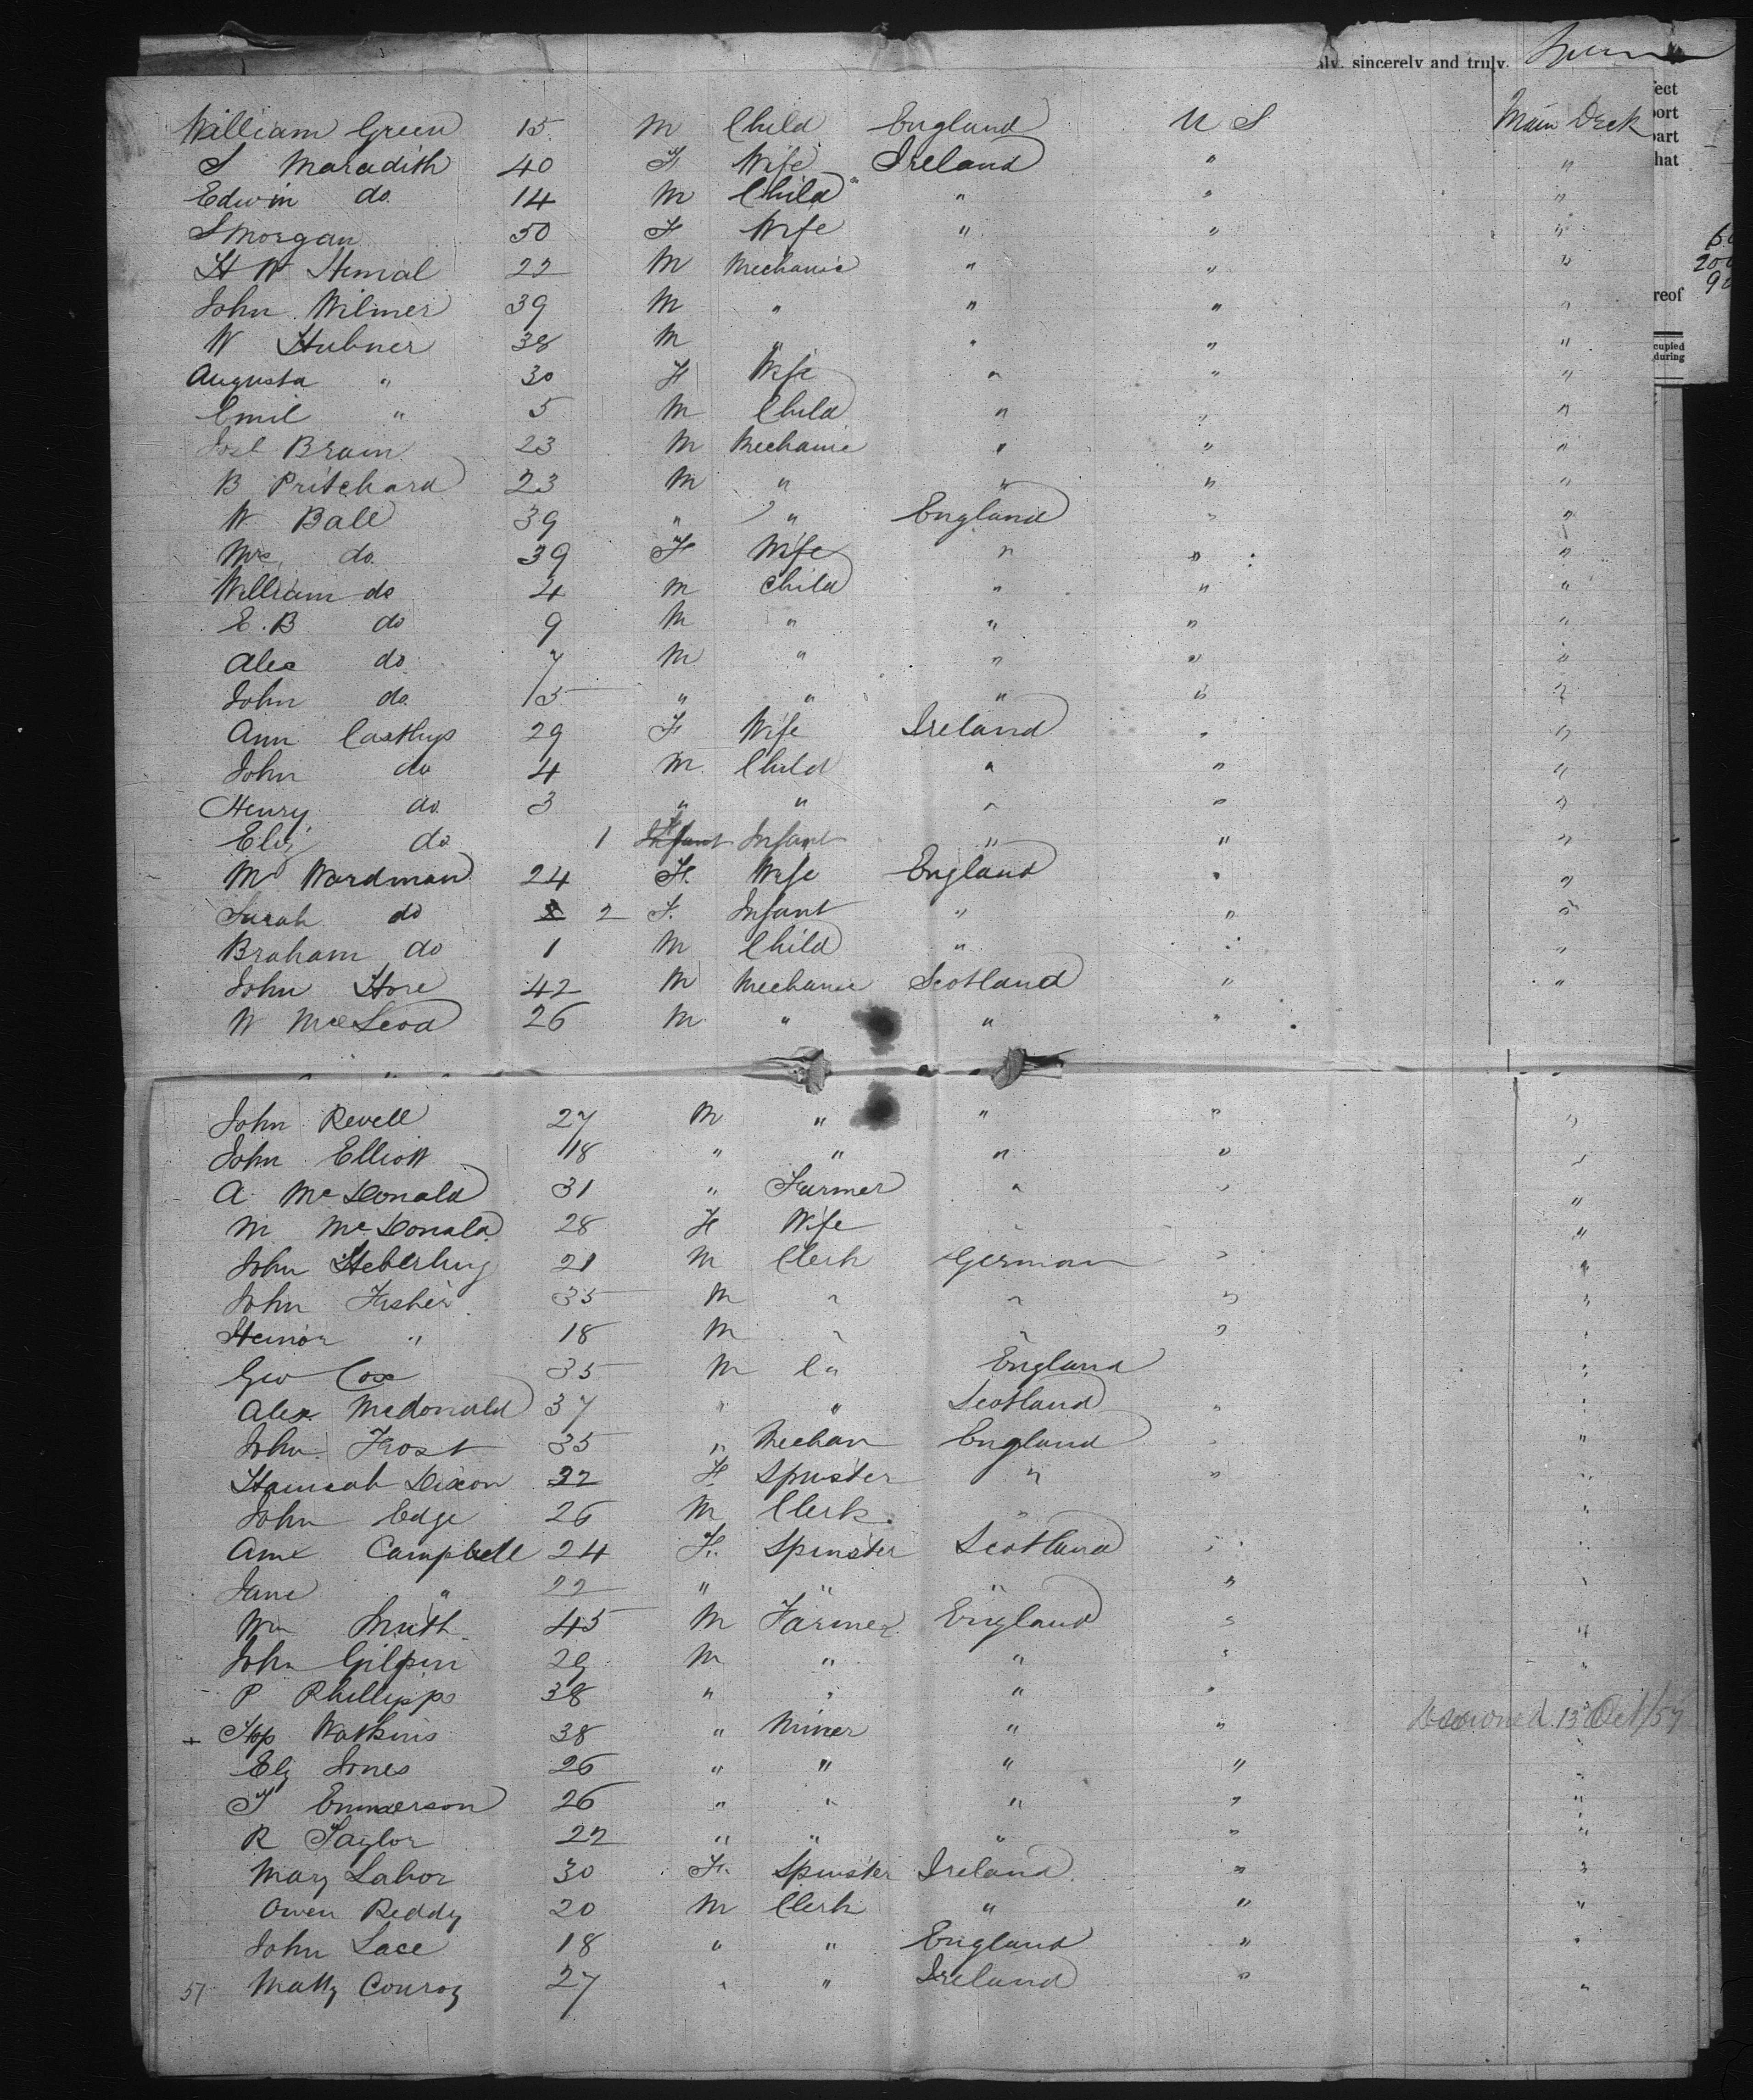 aly, sincerely and truly,
ect
ort
part
hat
200
reof
cupied
during
William Green 15 M Child England U S Main Deck
S Maradith 40 F Wife Ireland " "
Edwin do. 14 M Child " " "
S Morgan 50 F Wife " " "
H W Hemal 22 M Mechanic " " "
John Wilmer 39 M " " " "
W Hubner 38 M " " " "
Augusta " 30 F Wife " " "
Emil " 5 M Child " " "
Josl Bram 23 M Mechanic " " "
B Pritchard 23 M " " " "
W Ball 39 " " England " "
Mrs do. 39 F Wife " " "
William do 4 M Child " " "
E. B do 9 M " " " "
Alex do 7 M " " " "
John do. 15 " " " " "
Ann Casthys 29 F Wife Ireland " "
John do 4 M Child " " "
Henry do. 3 " " " " "
Eliz do 1 F Infant " " "
M Wardman 24 F. Wife England " "
Sarah do 2 F. Infant " " "
Braham do 1 M Child " " "
John Hore 42 M Mechanic Scotland " "
W McLeod 26 M " " "
John Revell 27 M " " " "
John Elliott 18 " " " " "
A. McDonald 31 " Farmer " " "
M McDonald 28 F Wife " "
John Heberling 21 M Clerk German " "
John Fisher 35 M " " " "
" 18 M " " " "
Geo Cox 35 M England "
Alex Mcdonald 37 " " Scotland " "
John Frost 35 " Mechan England " "
Hannah Dixon 32 F Spinster " " "
John Edge 26 M Clerk " "
Ame Campbell 24 F. Spinster Scotland " "
Jane " 22 " " " " "
Wm Smith 45 M Farmer England " "
John Gilpin 29 M " " " "
P Phillipps 38 " " " "
+ Hop Watkins 38 " Miner " " 13 Oct/57
Elz Jones 26 " " " " "
T Emmerson 26 " " " " "
R Taylor 22 " " " " "
Mary Labor 30 F. Spinster Ireland " "
Owen Reddy 20 M Clerk " " "
John Lace 18 " " England " "
51 Matty Conroy 27 " " Ireland " "